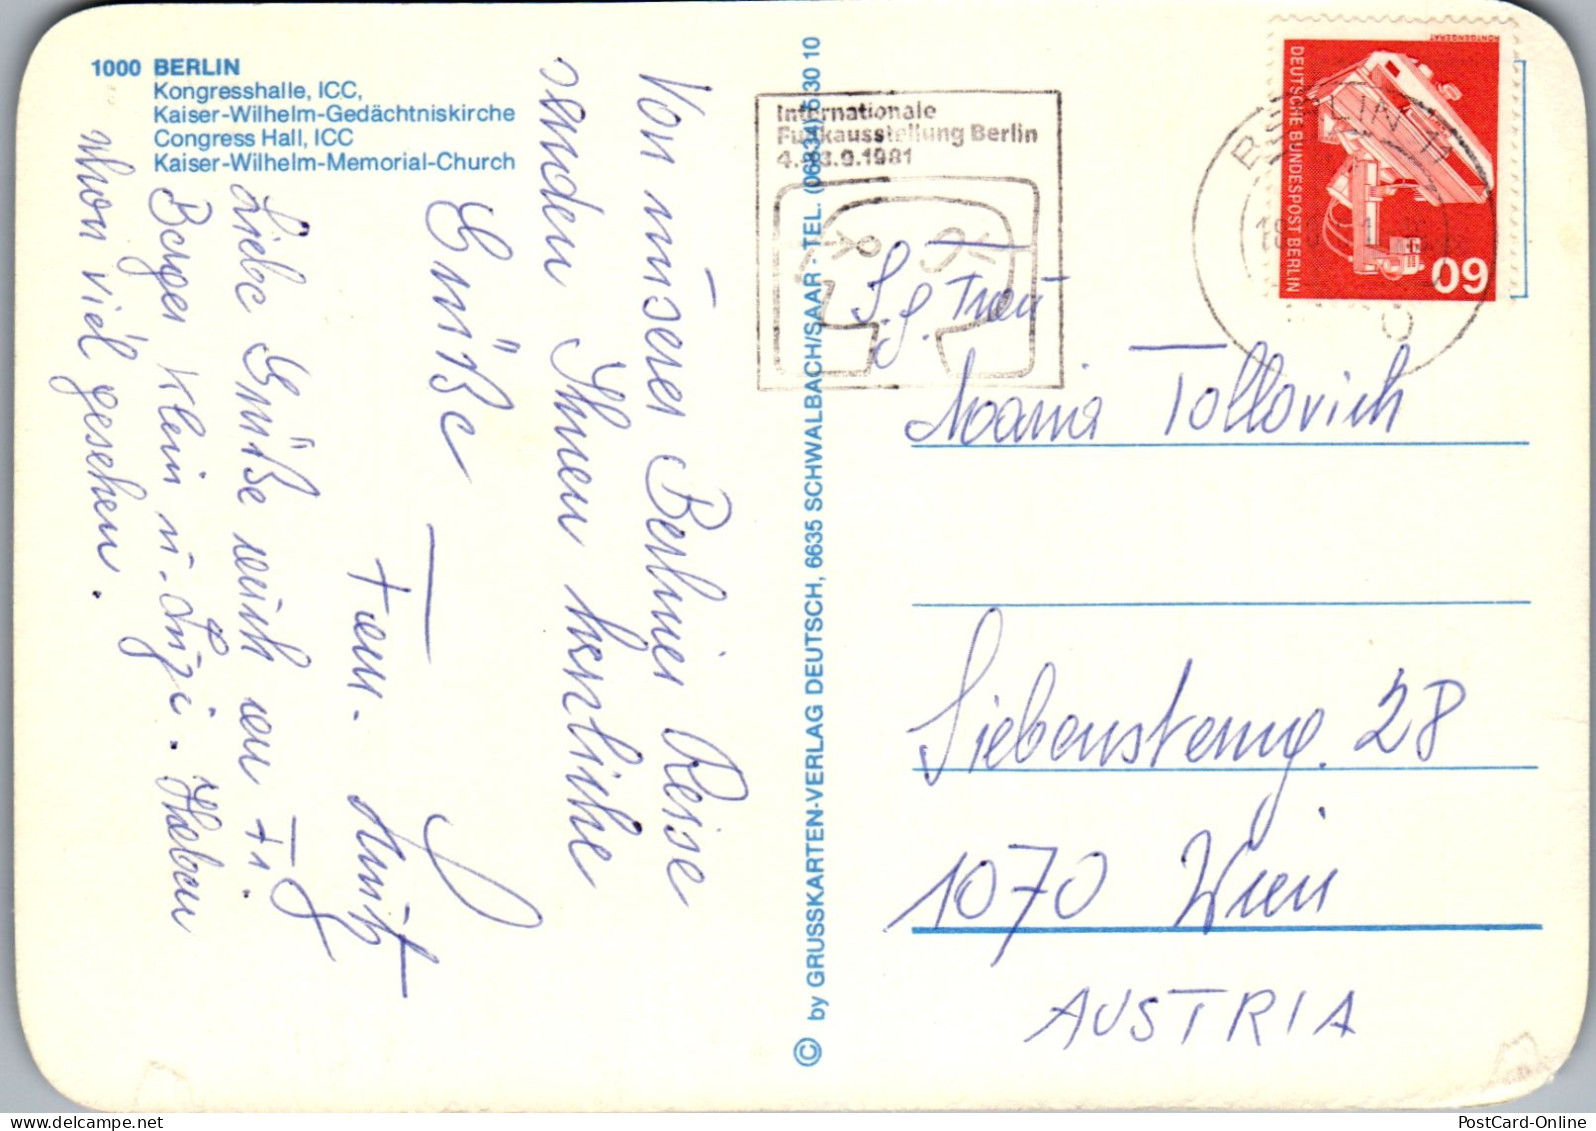 1000 BERLIN
Kongresshalle, ICC,
Kaiser-Wilhelm-Gedächtniskirche
Congress Hall, ICC
Kaiser-Wilhelm-Memorial-Church
Von unserer Berliner Reise
senden Ihnen herzliche
Grüße
Fam.
Liebe Grüße auch an Fr.
Berger Klein u. Luzi. Haben
schon viel gesehen.
© by GRUSSKARTEN-VERLAG DEUTSCH, 6635 SCHWALBACH/SAAR - TEL. (06834) 530 10
Internationale
Funkausstellung Berlin
4.-13.9.1981
BERLIN 11
RÖNTGENGERÄT
DEUTSCHE BUNDESPOST BERLIN
60
S.g. Frau
Maria Tollovich
Siebensterng. 28
1070 Wien
AUSTRIA
PostCard-Online